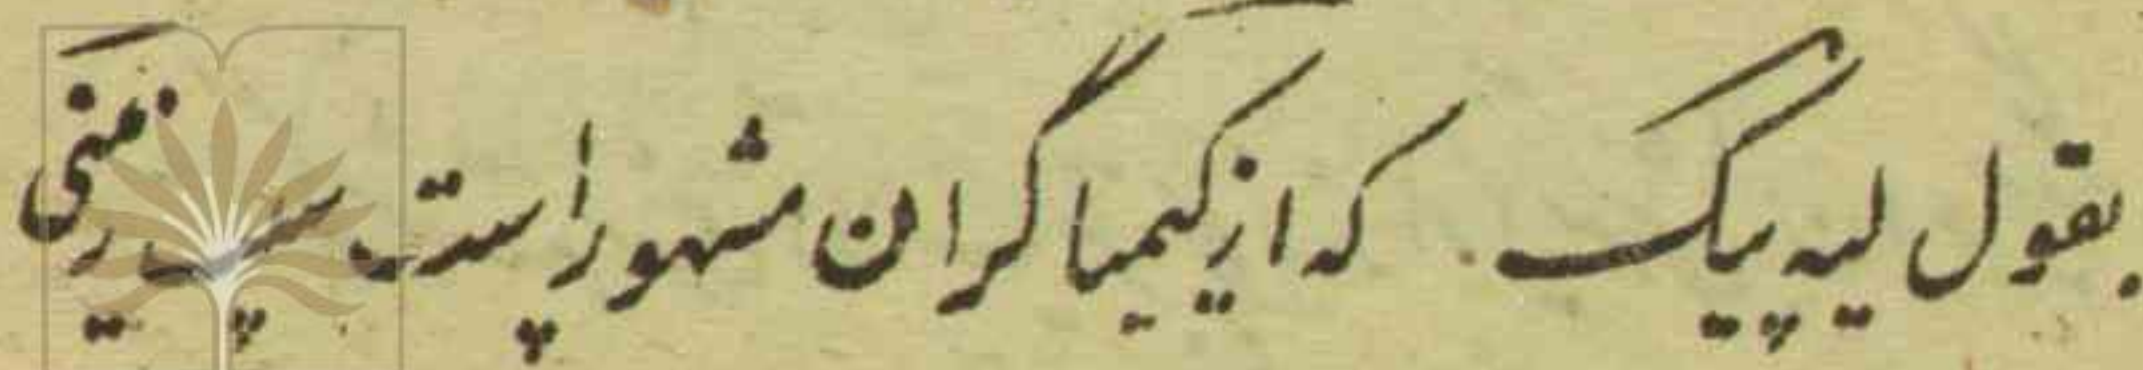 بقول لیه پیگ که از کیمیاگران مشهور است پس زمنی